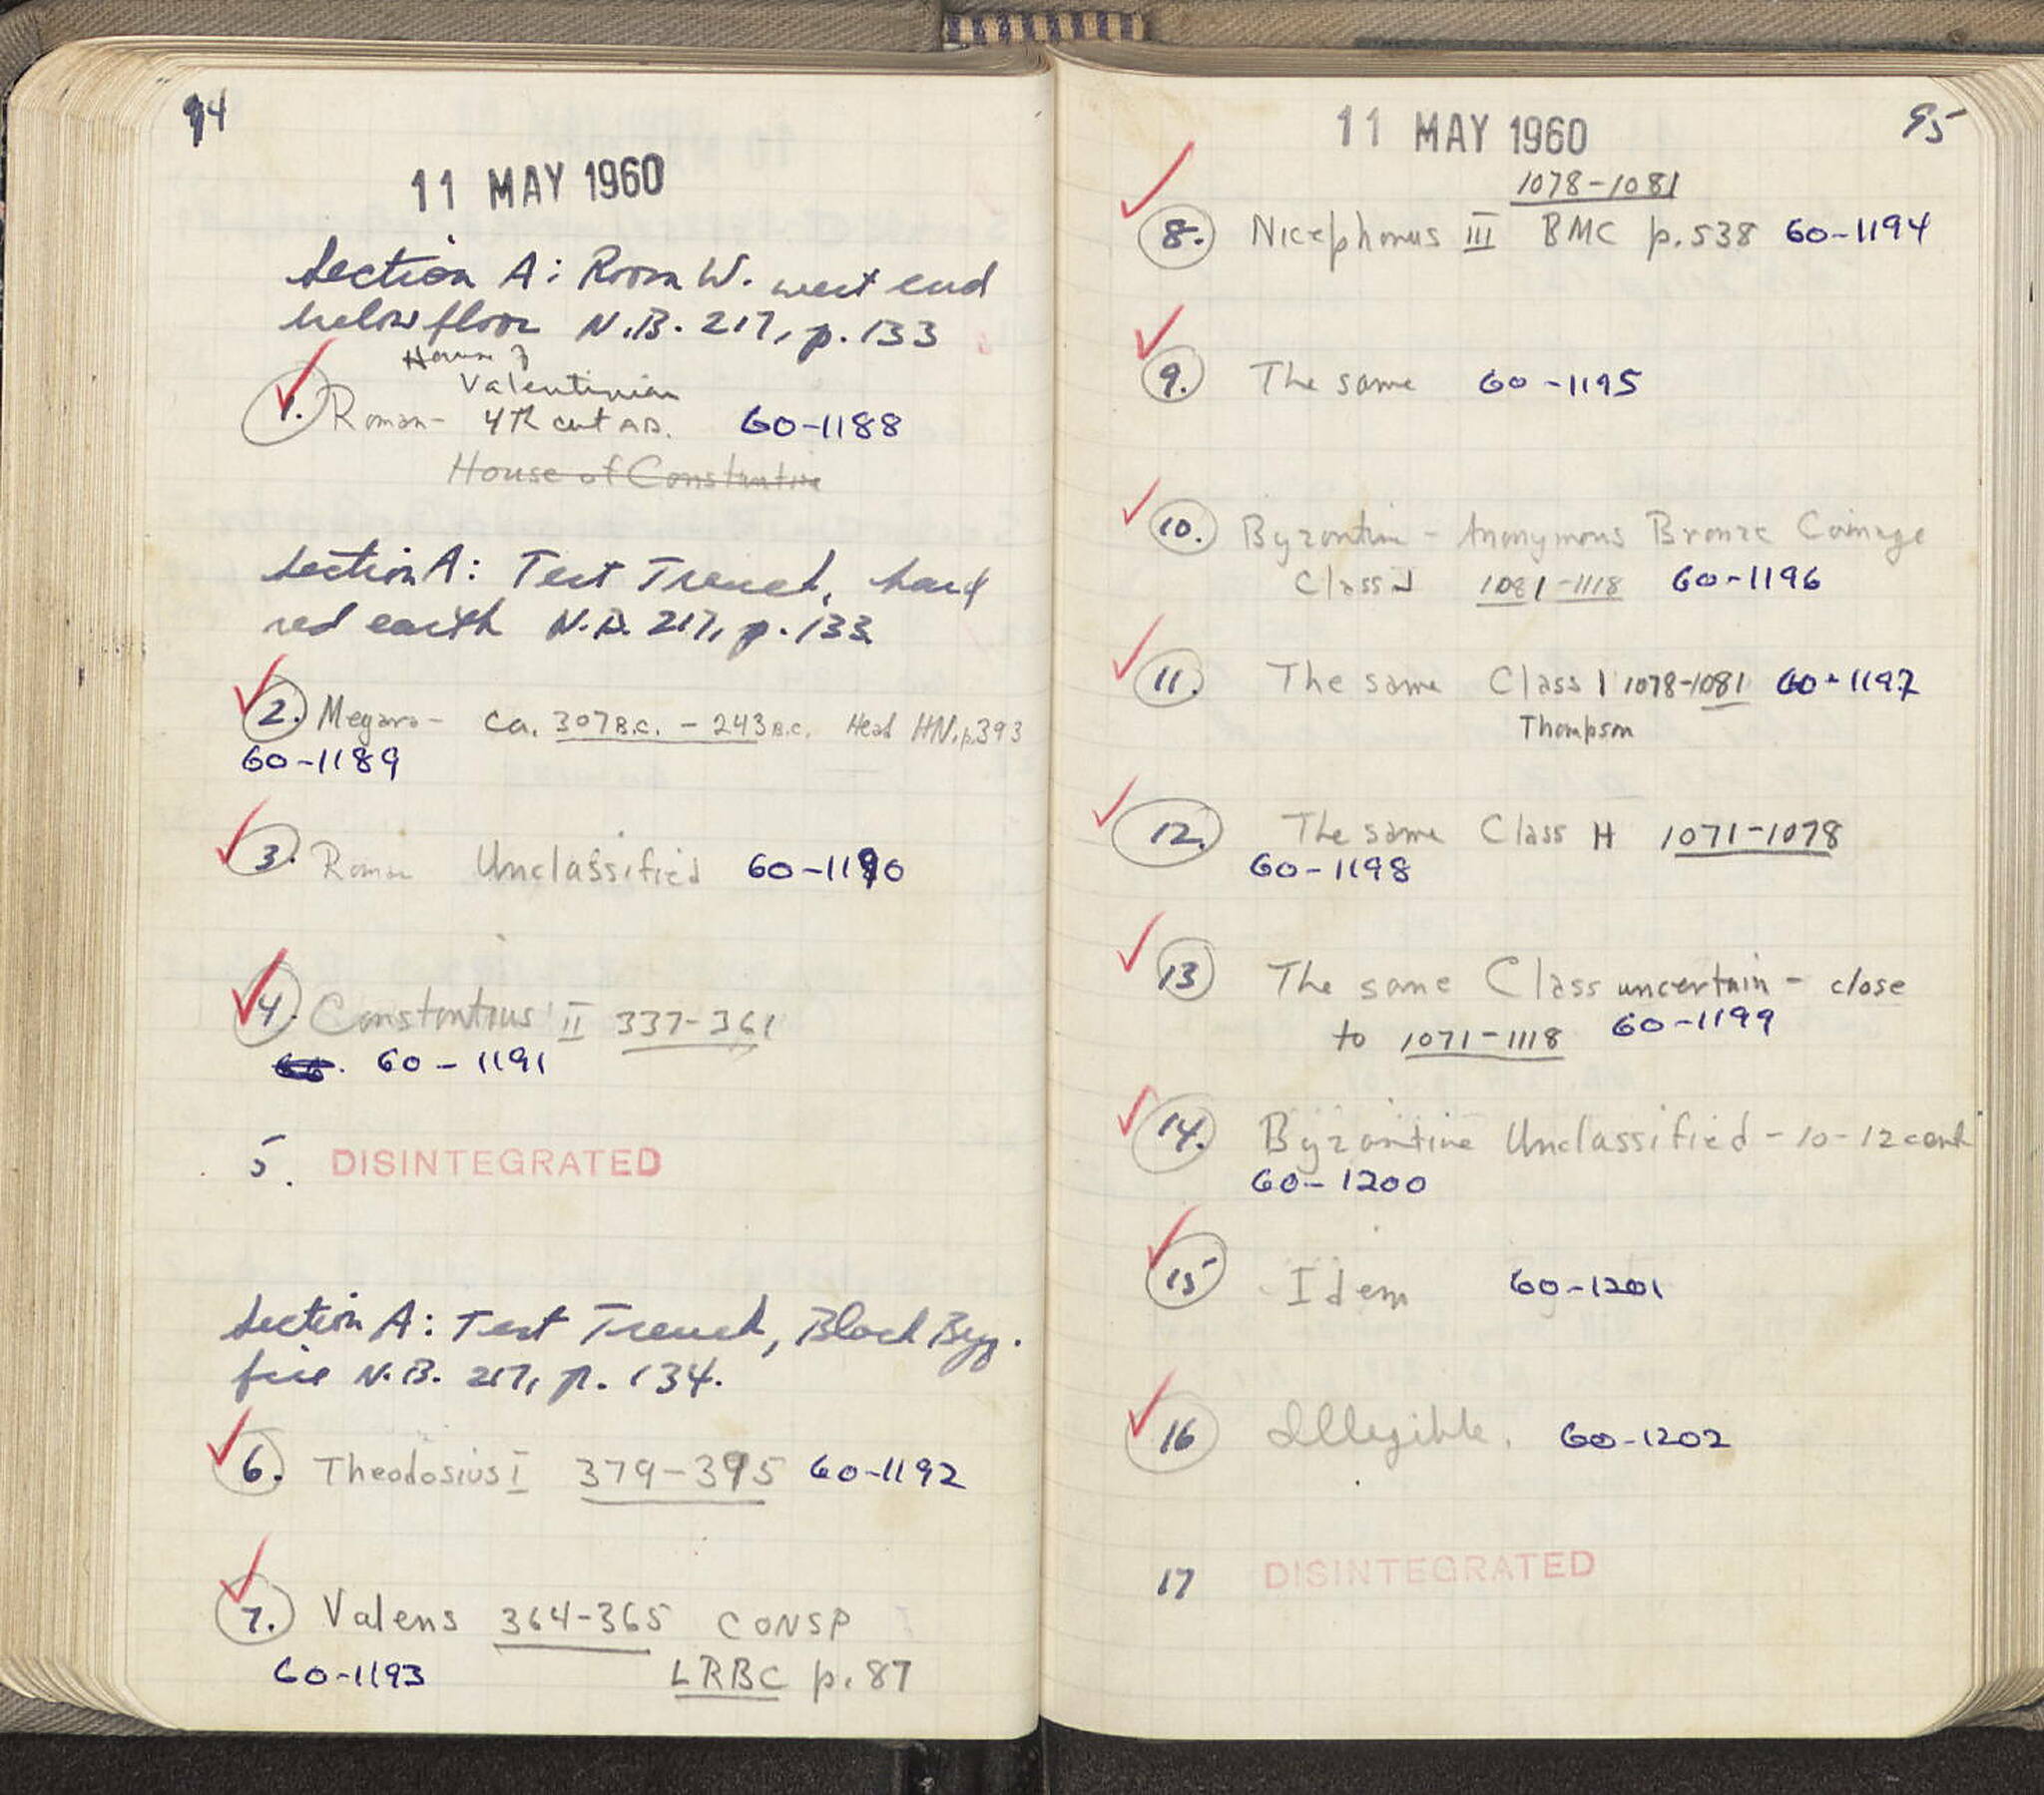 94
11 MAY 1960
Section A: Room W. west end
below floor N.B. 217, p. 133
House of
Valentinian
1. Roman - 4th cent A.D. 60-1188
House of Constantine
Section A: Test Trench, hard
red earth N.B. 217, p. 133
2. Megara - ca. 307 B.C. - 243 B.C. Head HN. p. 393
60-1189
3. Roman Unclassified 60-1190
4. Constantius II 337-361
60-1191
5. DISINTEGRATED
Section A: Test Trench, Black Byz.
fill N.B. 217, p. 134.
6. Theodosius I 379-395 60-1192
7. Valens 364-365 CONSP
60-1193 LRBC p. 87
95
11 MAY 1960
1078-1081
8. Nicephorus III BMC p. 538 60-1194
9. The same 60-1195
10. Byzantine - Anonymous Bronze Coinage
Class J 1081-1118 60-1196
11. The same Class I 1078-1081 60-1197
Thompson
12. The same Class H 1071-1078
60-1198
13 The same Class uncertain - close
to 1071-1118 60-1199
14. Byzantine Unclassified - 10-12 cent
60-1200
15 Idem 60-1201
16 Illegible. 60-1202
17 DISINTEGRATED